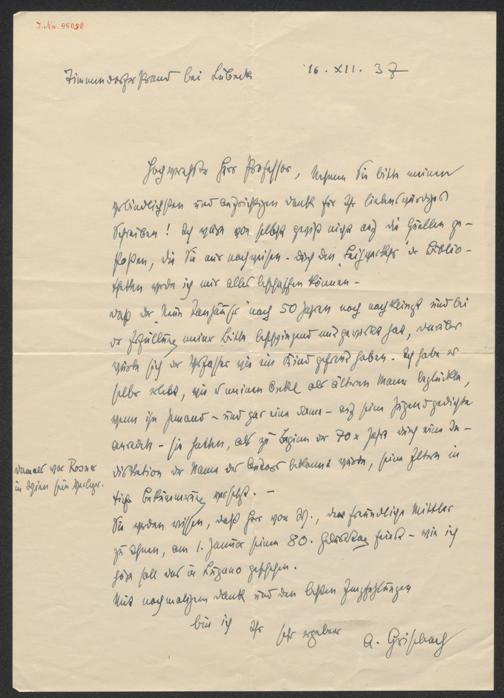 J.Nr. 95098
Timmendorfer Strand bei Lübeck 16. XII. 37
Hochverehrter Herr Professor, nehmen Sie bitte meinen
verbindlichsten und aufrichtigen Dank für Ihr liebenswürdiges
Schreiben! Ich wäre von selbst gewiß nicht auf die Quellen ge-
stoßen, die Sie mir nachweisen. Durch den "Leihverkehr" der Biblio-
theken werde ich mir alles beschaffen können.-
Daß der "Neue Tanhäuser" nach 50 Jahren noch nachklingt und bei
der Erfüllung meiner Bitte beschwingend mitgewirkt hat, darüber
würde sich der Verfasser wie ein Kind gefreut haben. Ich habe es
selbst erlebt, wie es meinen Onkel als älteren Mann beglückte,
wenn ihn Jemand - und gar eine Dame - auf seine Jugendgedichte
ansprach - sie hatten, als zu Beginn der 70er Jahre durch eine In-
diskretion der Name des Autors bekannt wurde, seine Eltern in
tiefe Bekümmerung versetzt. -
damals war Rosner
in Wien sein Verleger.
Sie werden wissen, daß Herr von W., der freundliche Mittler
zu Ihnen, am 1. Januar seinen 80. Geburtstag feiert - wie ich
höre soll das in Lugano geschehen.
Mit nochmaligem Dank und den besten Empfehlungen
bin ich Ihr sehr ergebener
A. Grisebach